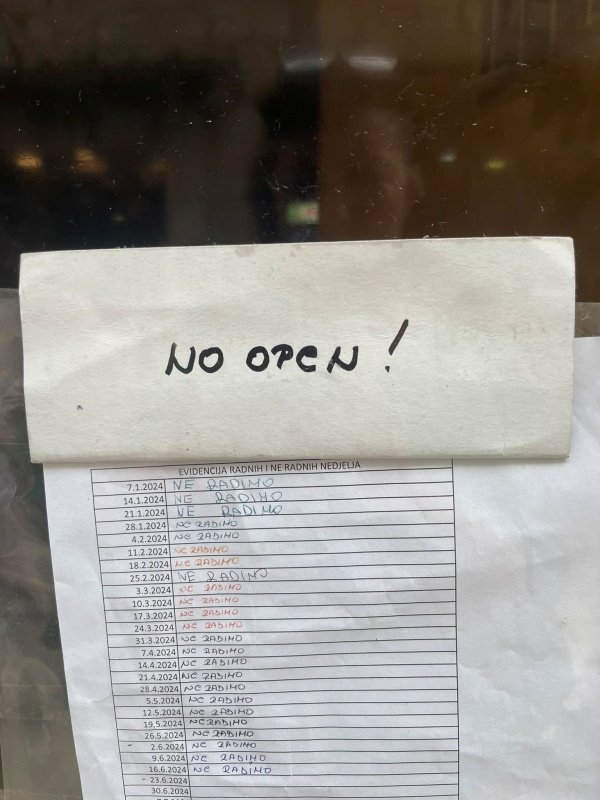 NO OPEN !
EVIDENCIJA RADNIH I NE RADNIH NEDJELJA
7.1.2024 NE RADIMO
14.1.2024 NE RADIMO
21.1.2024 NE RADIMO
28.1.2024 NE RADIMO
4.2.2024 NE RADIMO
11.2.2024 NE RADIMO
18.2.2024 NE RADIMO
25.2.2024 NE RADIMO
3.3.2024 NE RADIMO
10.3.2024 NE RADIMO
17.3.2024 NE RADIMO
24.3.2024 NE RADIMO
31.3.2024 NE RADIMO
7.4.2024 NE RADIMO
14.4.2024 NE RADIMO
21.4.2024 NE RADIMO
28.4.2024 NE RADIMO
5.5.2024 NE RADIMO
12.5.2024 NE RADIMO
19.5.2024 NE RADIMO
26.5.2024 NE RADIMO
- 2.6.2024 NE RADIMO
9.6.2024 NE RADIMO
16.6.2024 NE RADIMO
- 23.6.2024
30.6.2024